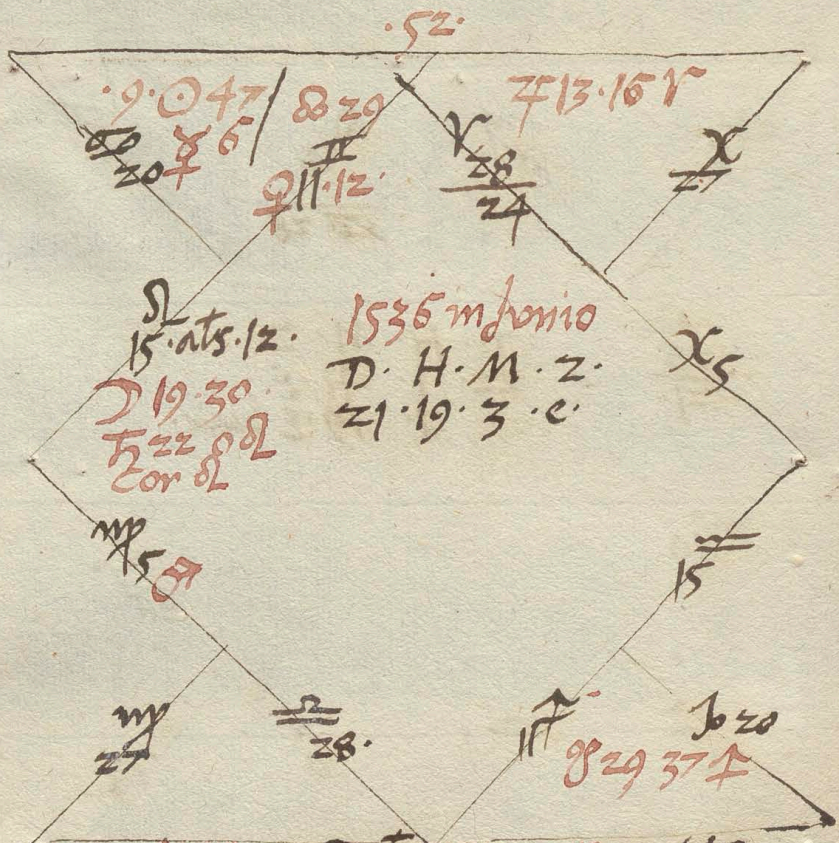 .52.
.9.☉ 47 / ☊ 29
♋ 20 ☿ 6
♊ 11.12 ♀
♈ 28 24
♃ 13.16 ♈
♓ 27
♌
15.als.12.
☽ 19.30
♄ 22 ♌
Cor ♌
1536 in Junio
D. H. M. 2.
21.19.3.e.
♓ 5
♍ 5 ♂
♒ 15
♍ 27
♎ 28.
♐ 11
♑ 20
☋ 29 37 ♐